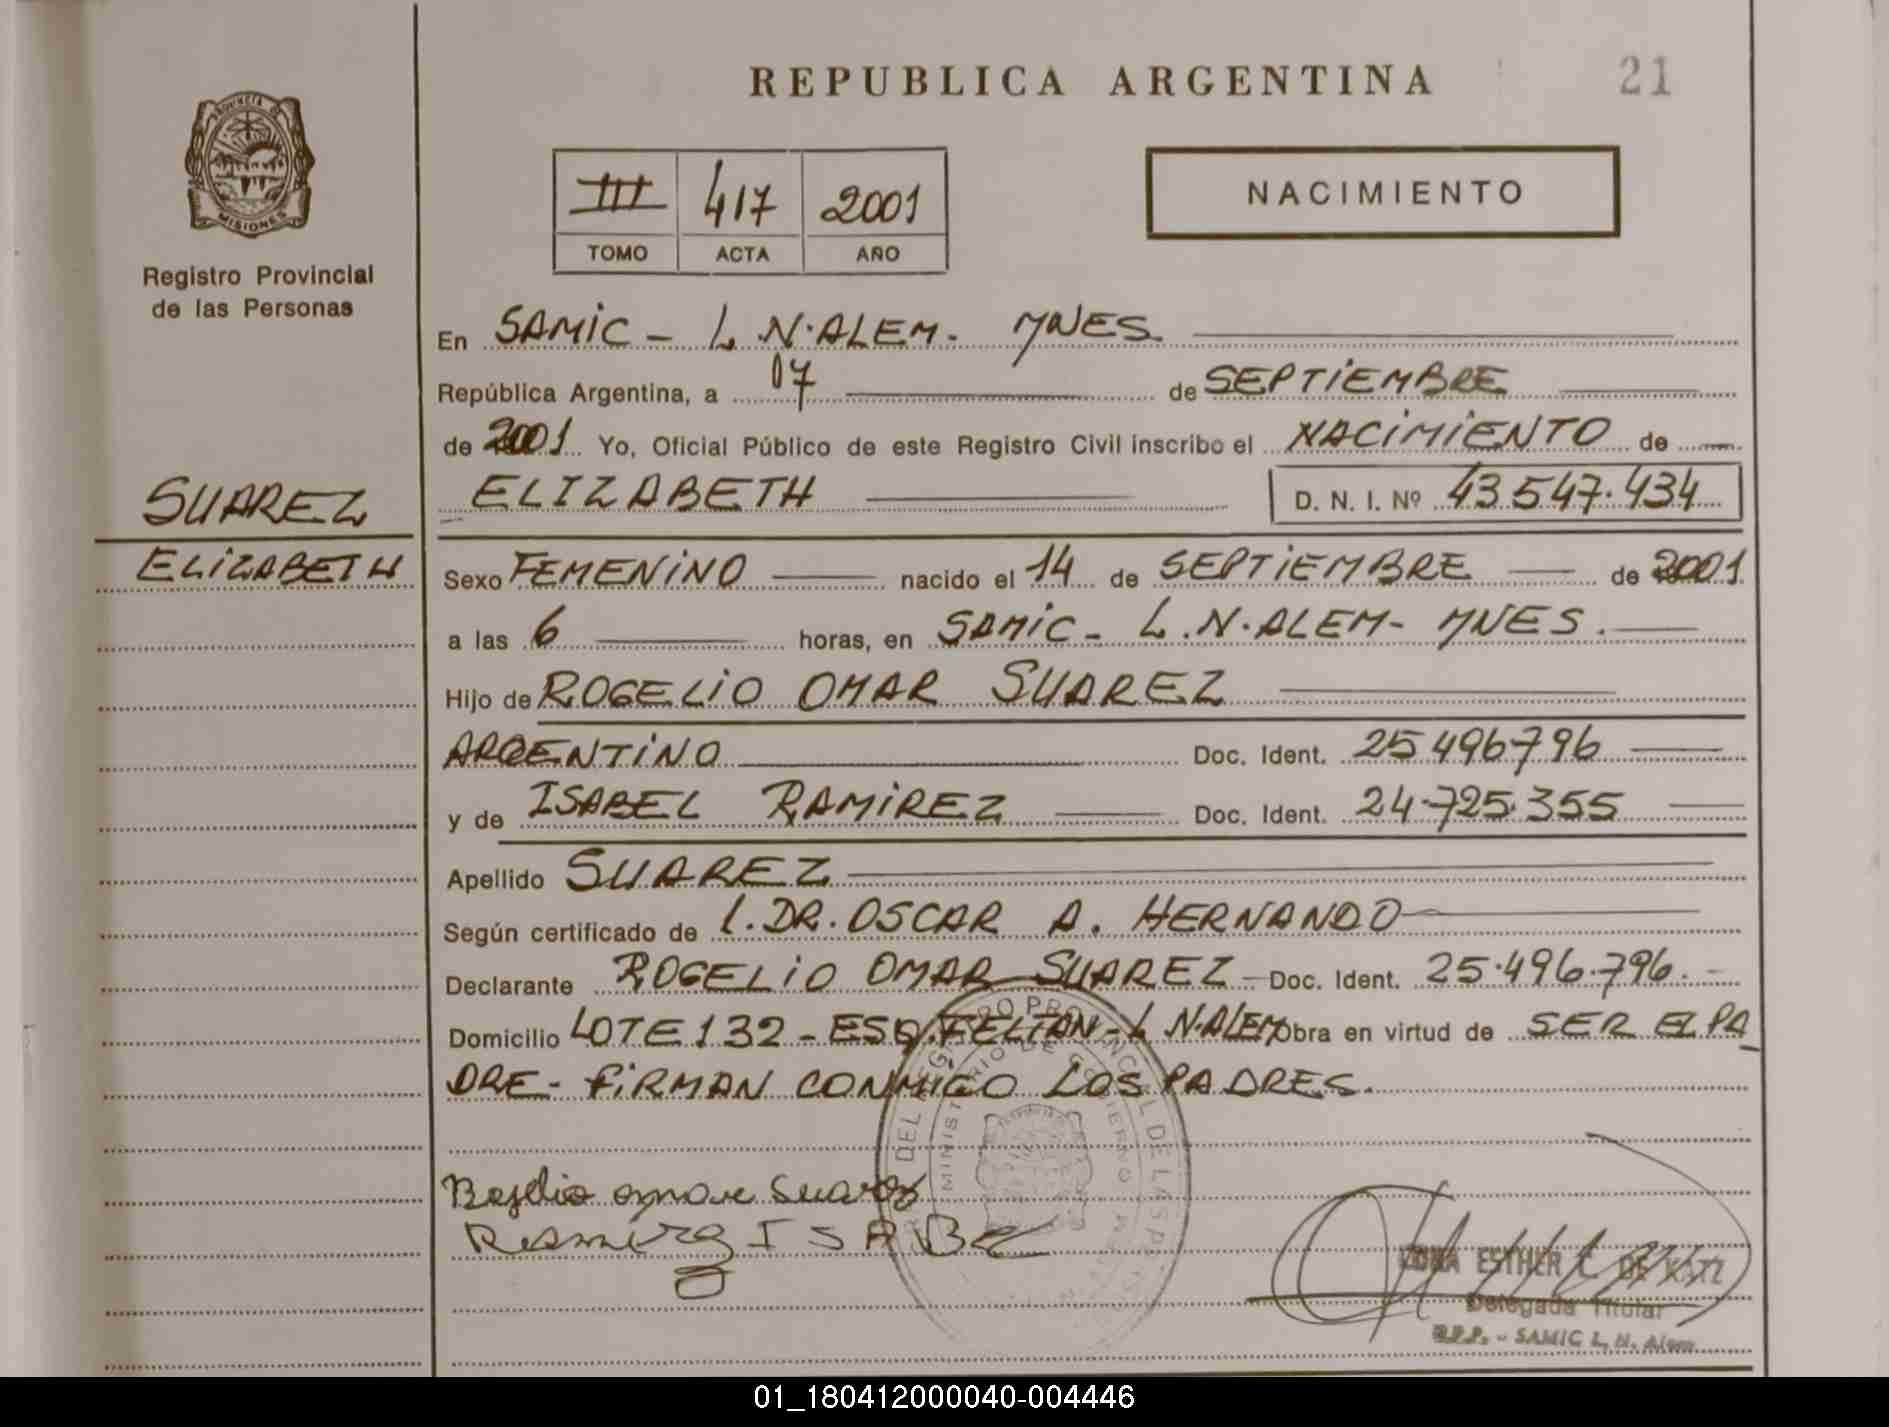 REPUBLICA ARGENTINA 21
PROVINCIA DE MISIONES
Registro Provincial
de las Personas
III 417 2001
TOMO ACTA AÑO
NACIMIENTO
En SAMIC - L.N.ALEM - MNES.
República Argentina, a 07 de SEPTIEMBRE
de 2001 Yo, Oficial Público de este Registro Civil inscribo el NACIMIENTO de
ELIZABETH D. N. I. Nº 43.547.434
SUAREZ
ELIZABETH
Sexo FEMENINO nacido el 14 de SEPTIEMBRE de 2001
a las 6 horas, en SAMIC - L.N.ALEM - MNES.
Hijo de ROGELIO OMAR SUAREZ
ARGENTINO Doc. Ident. 25.496796
y de ISABEL RAMIREZ Doc. Ident. 24.725.355
Apellido SUAREZ
Según certificado de L. DR. OSCAR A. HERNANDO
Declarante ROGELIO OMAR SUAREZ Doc. Ident. 25.496.796.
Domicilio LOTE 132 - ESQ. - L.N.ALEM Obra en virtud de SER EL PA
DRE - FIRMAN CONMIGO LOS PADRES.
DEL REGISTRO PROVINCIAL DE LAS PERSONAS
MINISTERIO DE GOBIERNO
Rogelio omare Suarez
Ramirez ISABEL
ESTHER C. DE KATZ
Delegada Titular
R.P.P. - SAMIC L. N. Alem
01_180412000040-004446